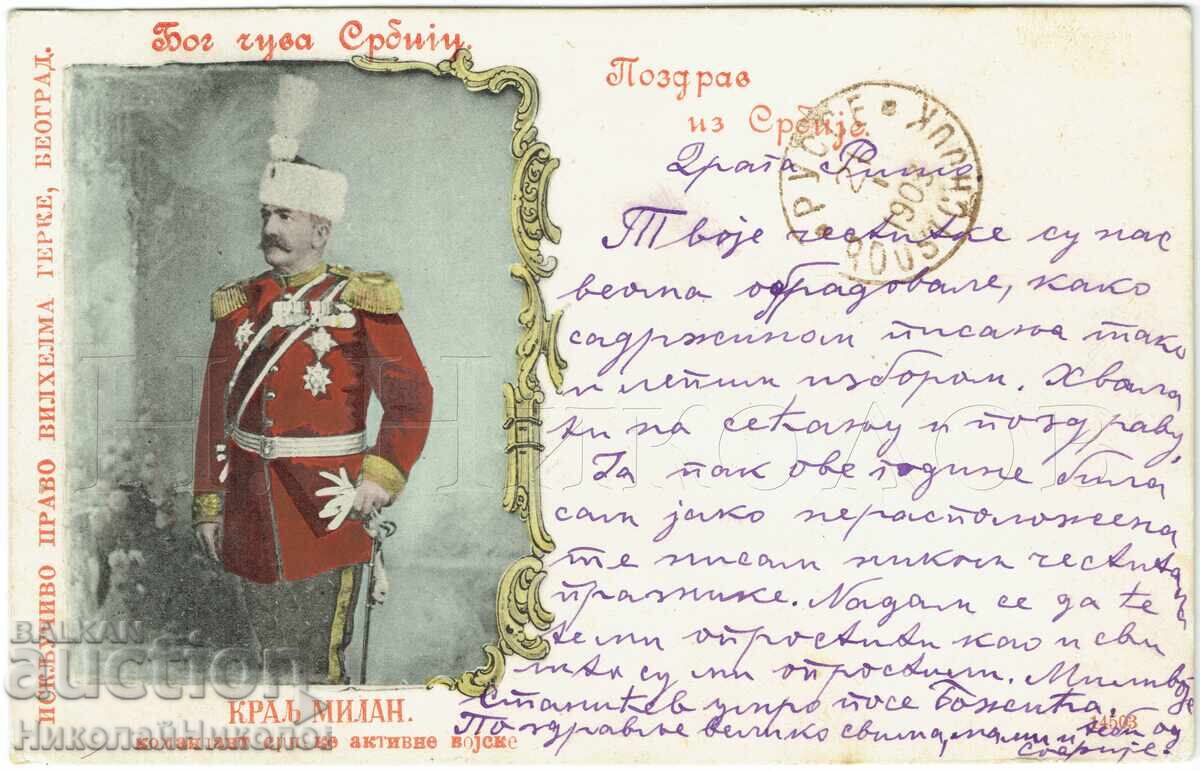 Бог чува Србију.
Поздрав
из Србије.
ИСКЉУЧИВО ПРАВО ВИЛХЕЛМА ГЕРКЕ, БЕОГРАД.
КРАЉ МИЛАН.
командант српске активне војске
14503
РУСЕ
1903
Драга
Твоје честитке су нас
веома обрадовале, како
садржином писања тако
и лепим избором. Хвала
ти на сећању и поздраву,
Ја пак ове године била
сам јако нерасположена
те нисам ником честитала
празнике. Надам се да ће
те ми опростити као и сви
што су ми опростили. Миливоје
Станићев умро после Божића.
Поздравље велико свима, мами и теби од
Софије.
BALKAN
auction
НиколайНиколов
Н НИКОЛОВ